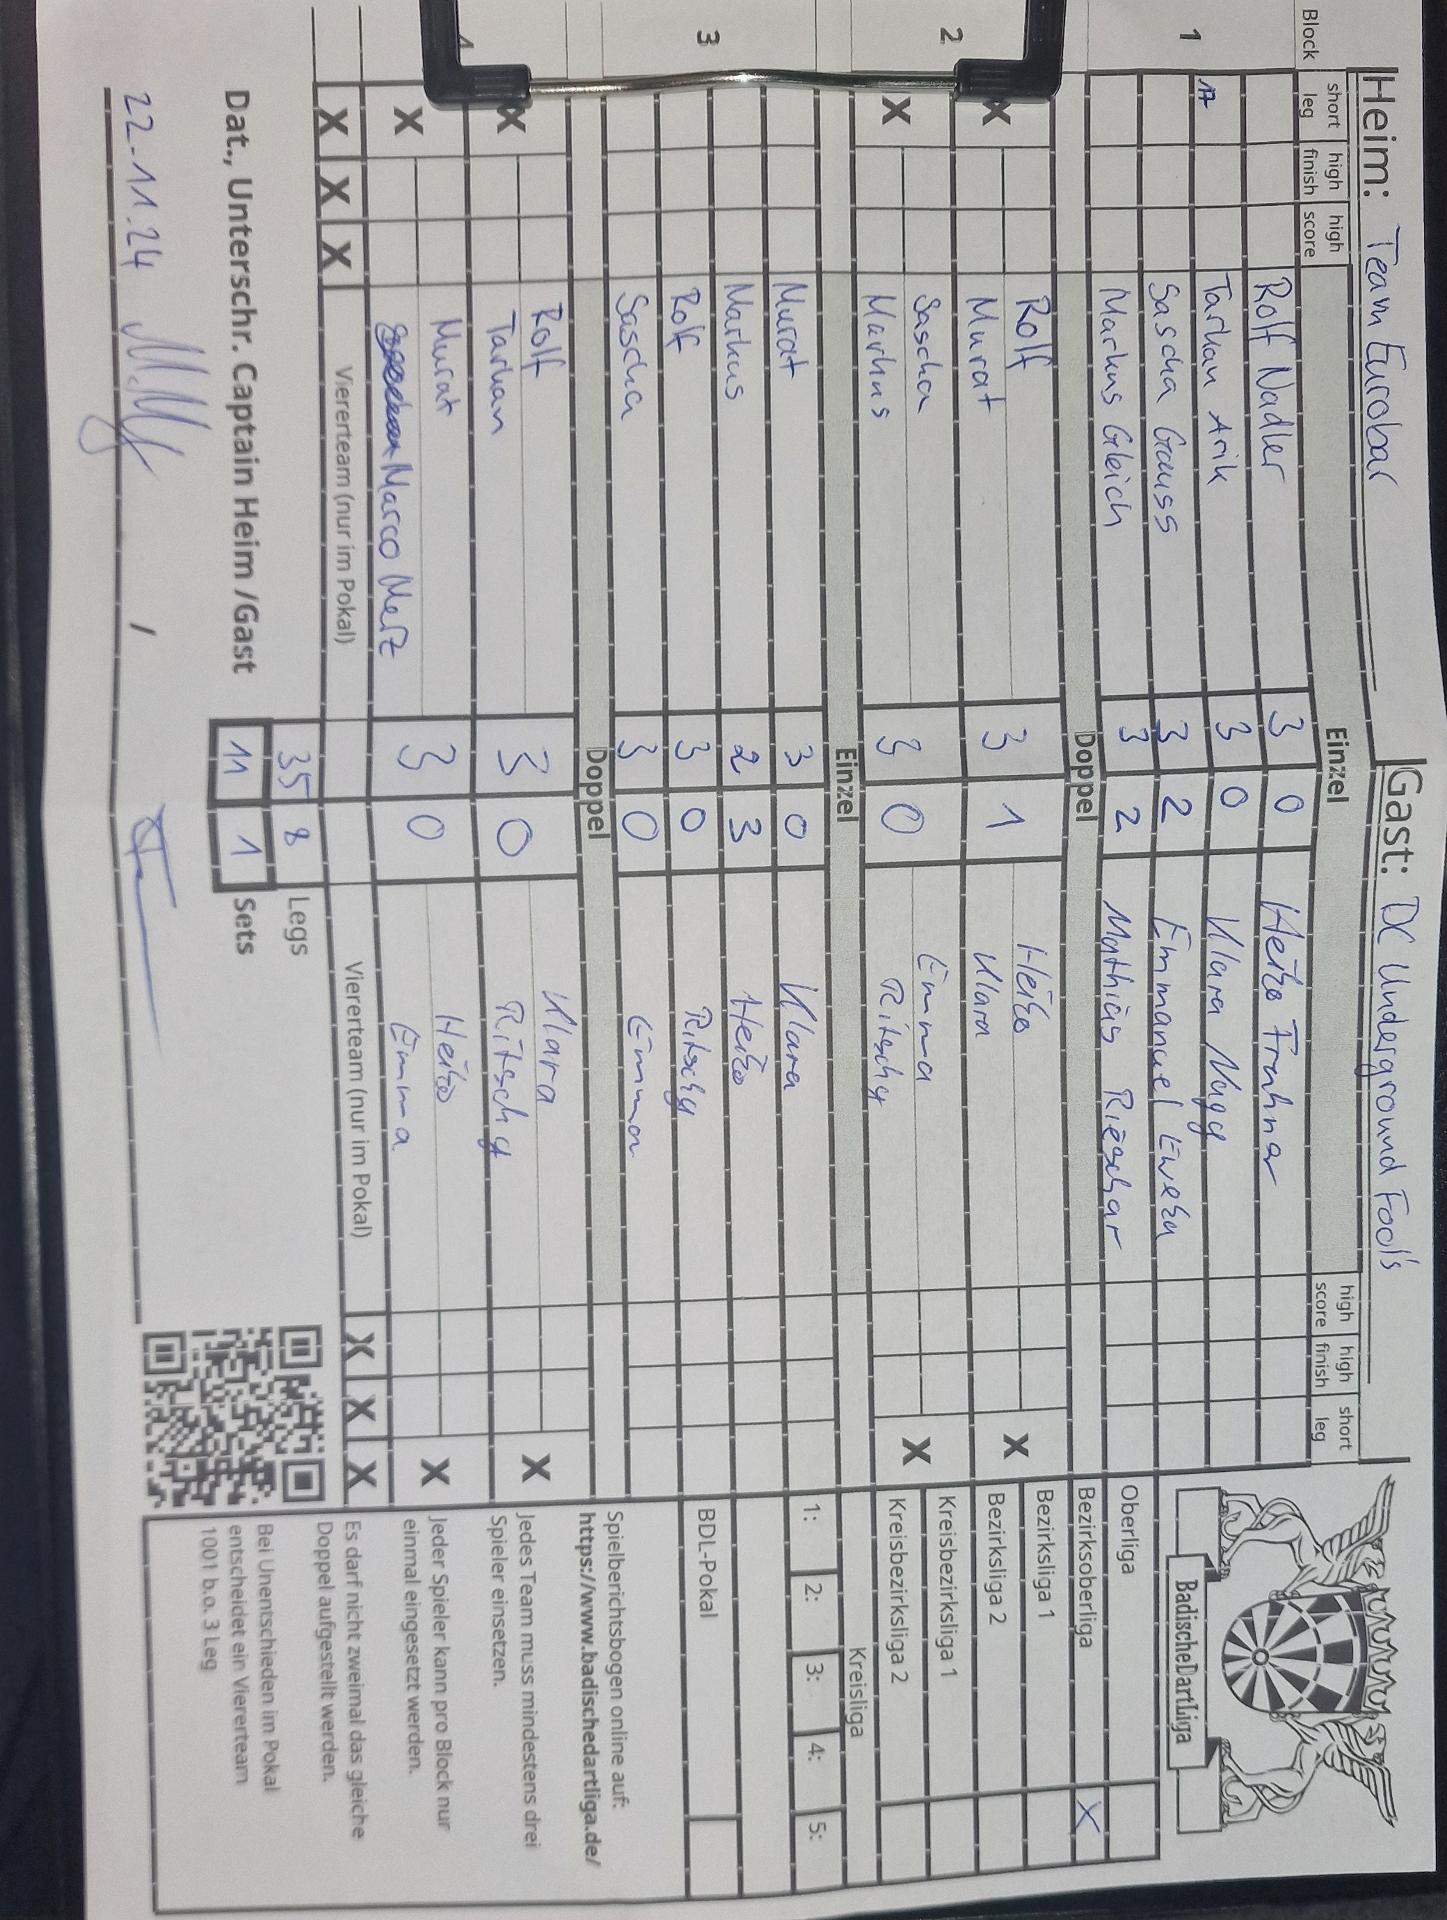 Heim: Team Eurobar
Gast: DC Underground Fool's
Block short leg high finish high score Einzel high score high finish short leg
1
Rolf Nadler 3 0 Heiko Frahner
17 Tarkan Arik 3 0 Klara Nagy
Sascha Gauss 3 2 Emmanuel
Markus Gleich 3 2 Mathias
Doppel
2
X Rolf 3 1 Heiko X
Murat Klara
X Sascha 3 0 Emma X
Markus Ritschy
Einzel
3
Murat 3 0 Klara
Markus 2 3 Heiko
Rolf 3 0 Ritschy
Sascha 3 0 Emma
Doppel
4
X Rolf 3 0 Klara X
Tarkan Ritschy
X Murat 3 0 Heiko X
Marco Merz Emma
X X X Viererteam (nur im Pokal) Viererteam (nur im Pokal) X X X
35 8 Legs
Dat., Unterschr. Captain Heim /Gast 11 1 Sets
22.11.24 /
BadischeDartLiga
Oberliga
Bezirksoberliga X
Bezirksliga 1
Bezirksliga 2
Kreisbezirksliga 1
Kreisbezirksliga 2
Kreisliga
1: 2: 3: 4: 5:
BDL-Pokal
Spielberichtsbogen online auf:
https://www.badischedartliga.de/
Jedes Team muss mindestens drei
Spieler einsetzen.
Jeder Spieler kann pro Block nur
einmal eingesetzt werden.
Es darf nicht zweimal das gleiche
Doppel aufgestellt werden.
Bei Unentschieden im Pokal
entscheidet ein Viererteam
1001 b.o. 3 Leg